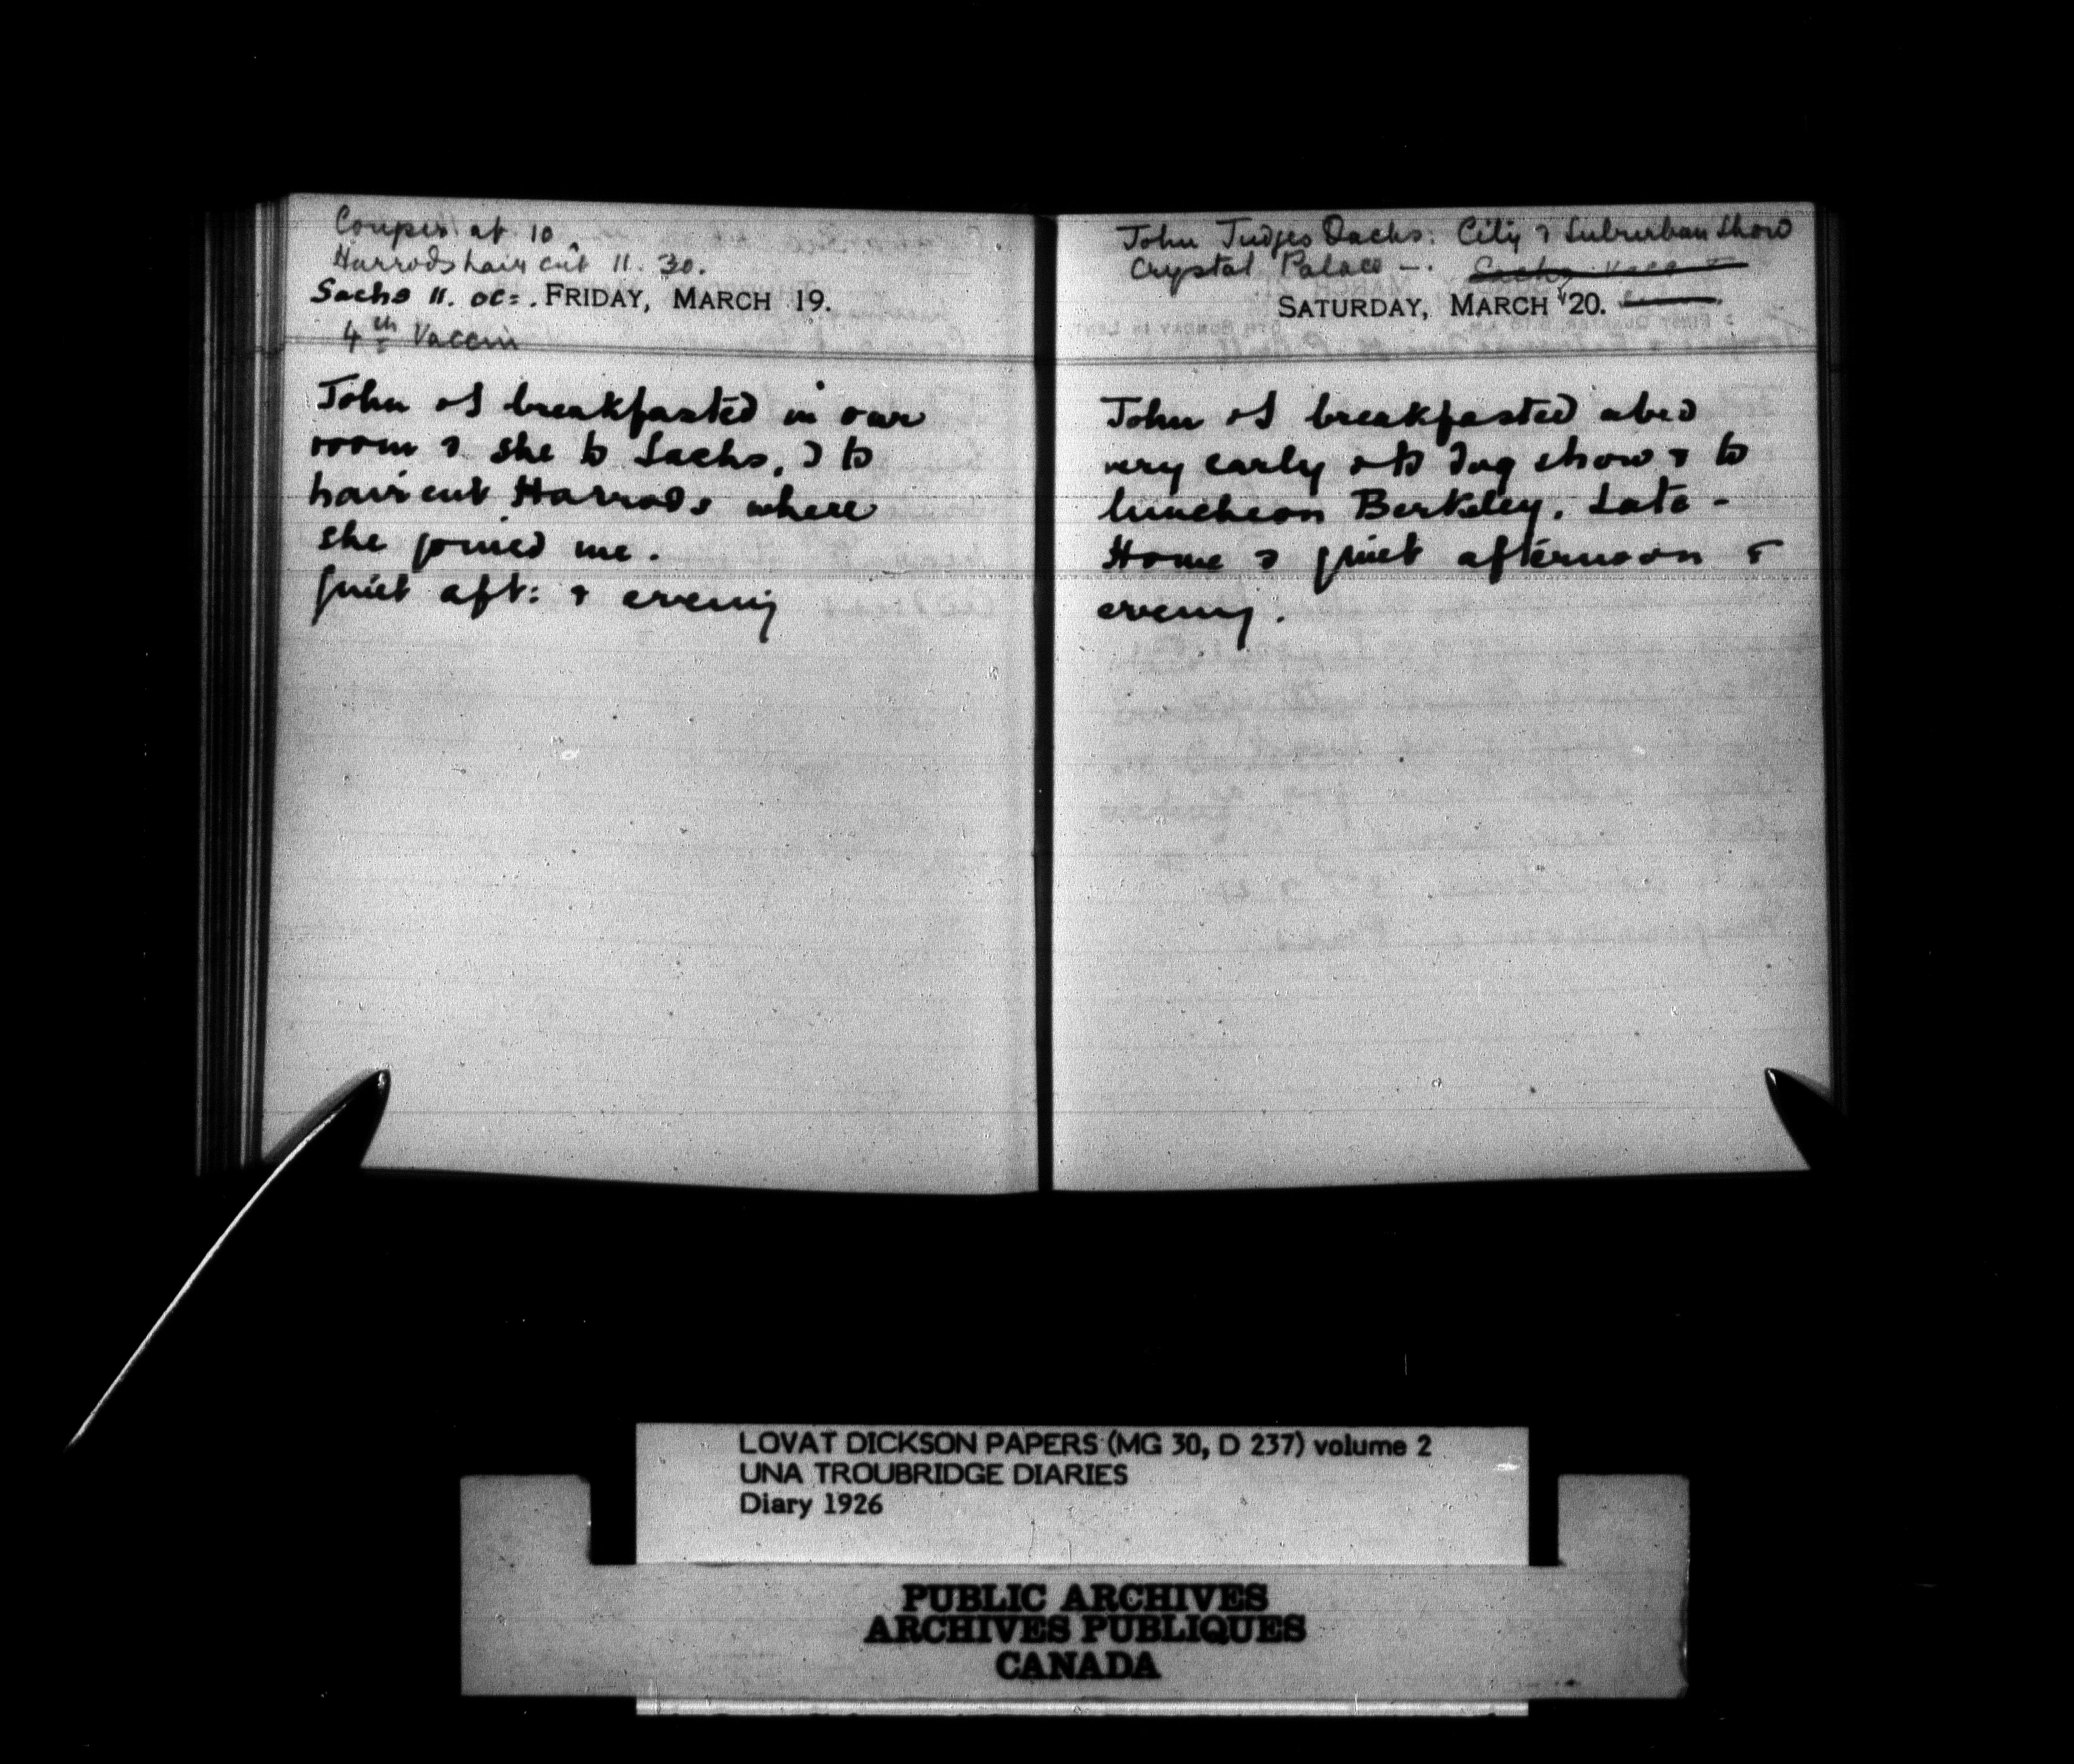 Couper at 10
Harrods hair cut 11. 30.
Sachs 11. oc=. FRIDAY, MARCH 19.
4th Vaccin
John & I breakfasted in our
room & she to Sachs, I to
hair cut Harrods where
she joined me.
Quiet aft: & evening
John Judges Dachs: City & Suburban Show
Crystal Palace -. Sachs
SATURDAY, MARCH 20.
John & I breakfasted abed
very early & to dog show & to
luncheon Berkeley. Late -
Home & quiet afternoon &
evening.
LOVAT DICKSON PAPERS (MG 30, D 237) volume 2
UNA TROUBRIDGE DIARIES
Diary 1926
PUBLIC ARCHIVES
ARCHIVES PUBLIQUES
CANADA